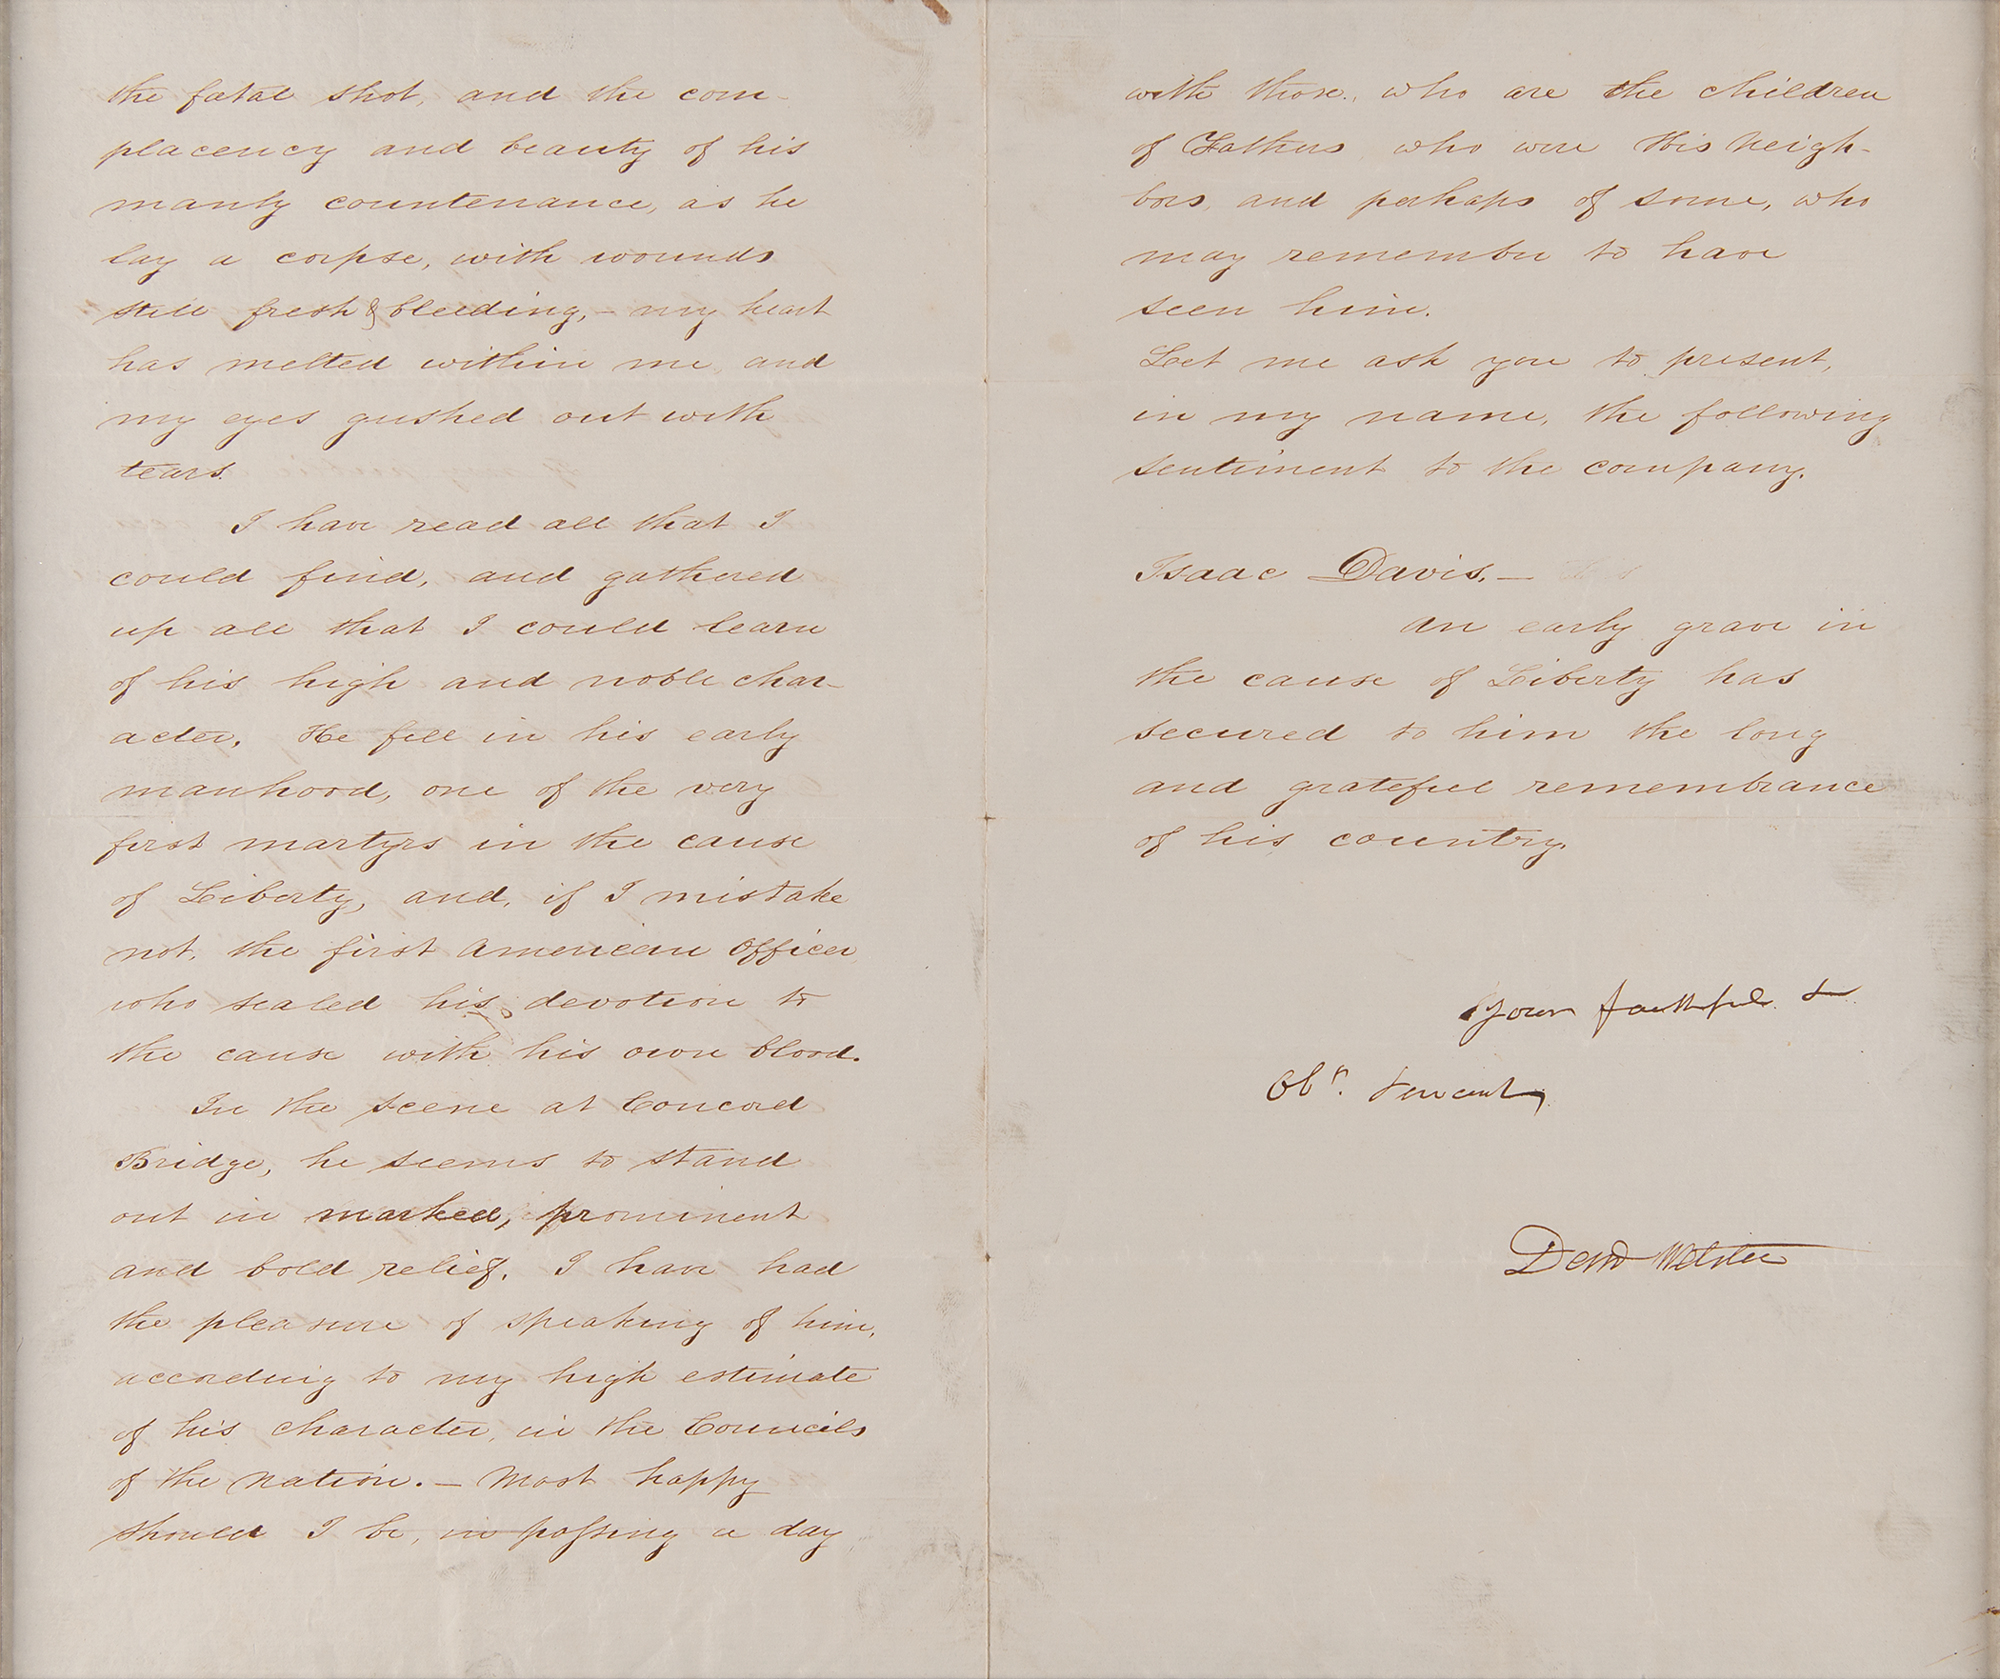 the fatal shot, and the com-
placency and beauty of his
manly countenance, as he
lay a corpse, with wounds
still fresh & bleeding, - my heart
has melted within me, and
my eyes gushed out with
tears.
I have read all that I
could find, and gathered
up all that I could learn
of his high and noble char-
acter. He fell in his early
manhood, one of the very
first martyrs in the cause
of Liberty, and, if I mistake
not, the first American Officer
who sealed his devotion to
the cause with his own blood.
In the scene at Concord
Bridge, he seems to stand
out in marked, prominent
and bold relief. I have had
the pleasure of speaking of him,
according to my high estimate
of his character, in the Councils
of the nation. - Most happy
should I be, in passing a day
with those, who are the children
of Fathers who were His Neigh-
bors, and perhaps of some, who
may remember to have
seen him.
Let me ask you to present,
in my name, the following
sentiment to the company.
Isaac Davis. -
An early grave in
the cause of Liberty has
secured to him the long
and grateful remembrance
of his country.
Your faithful &
Obt. Servant,
Danl Webster